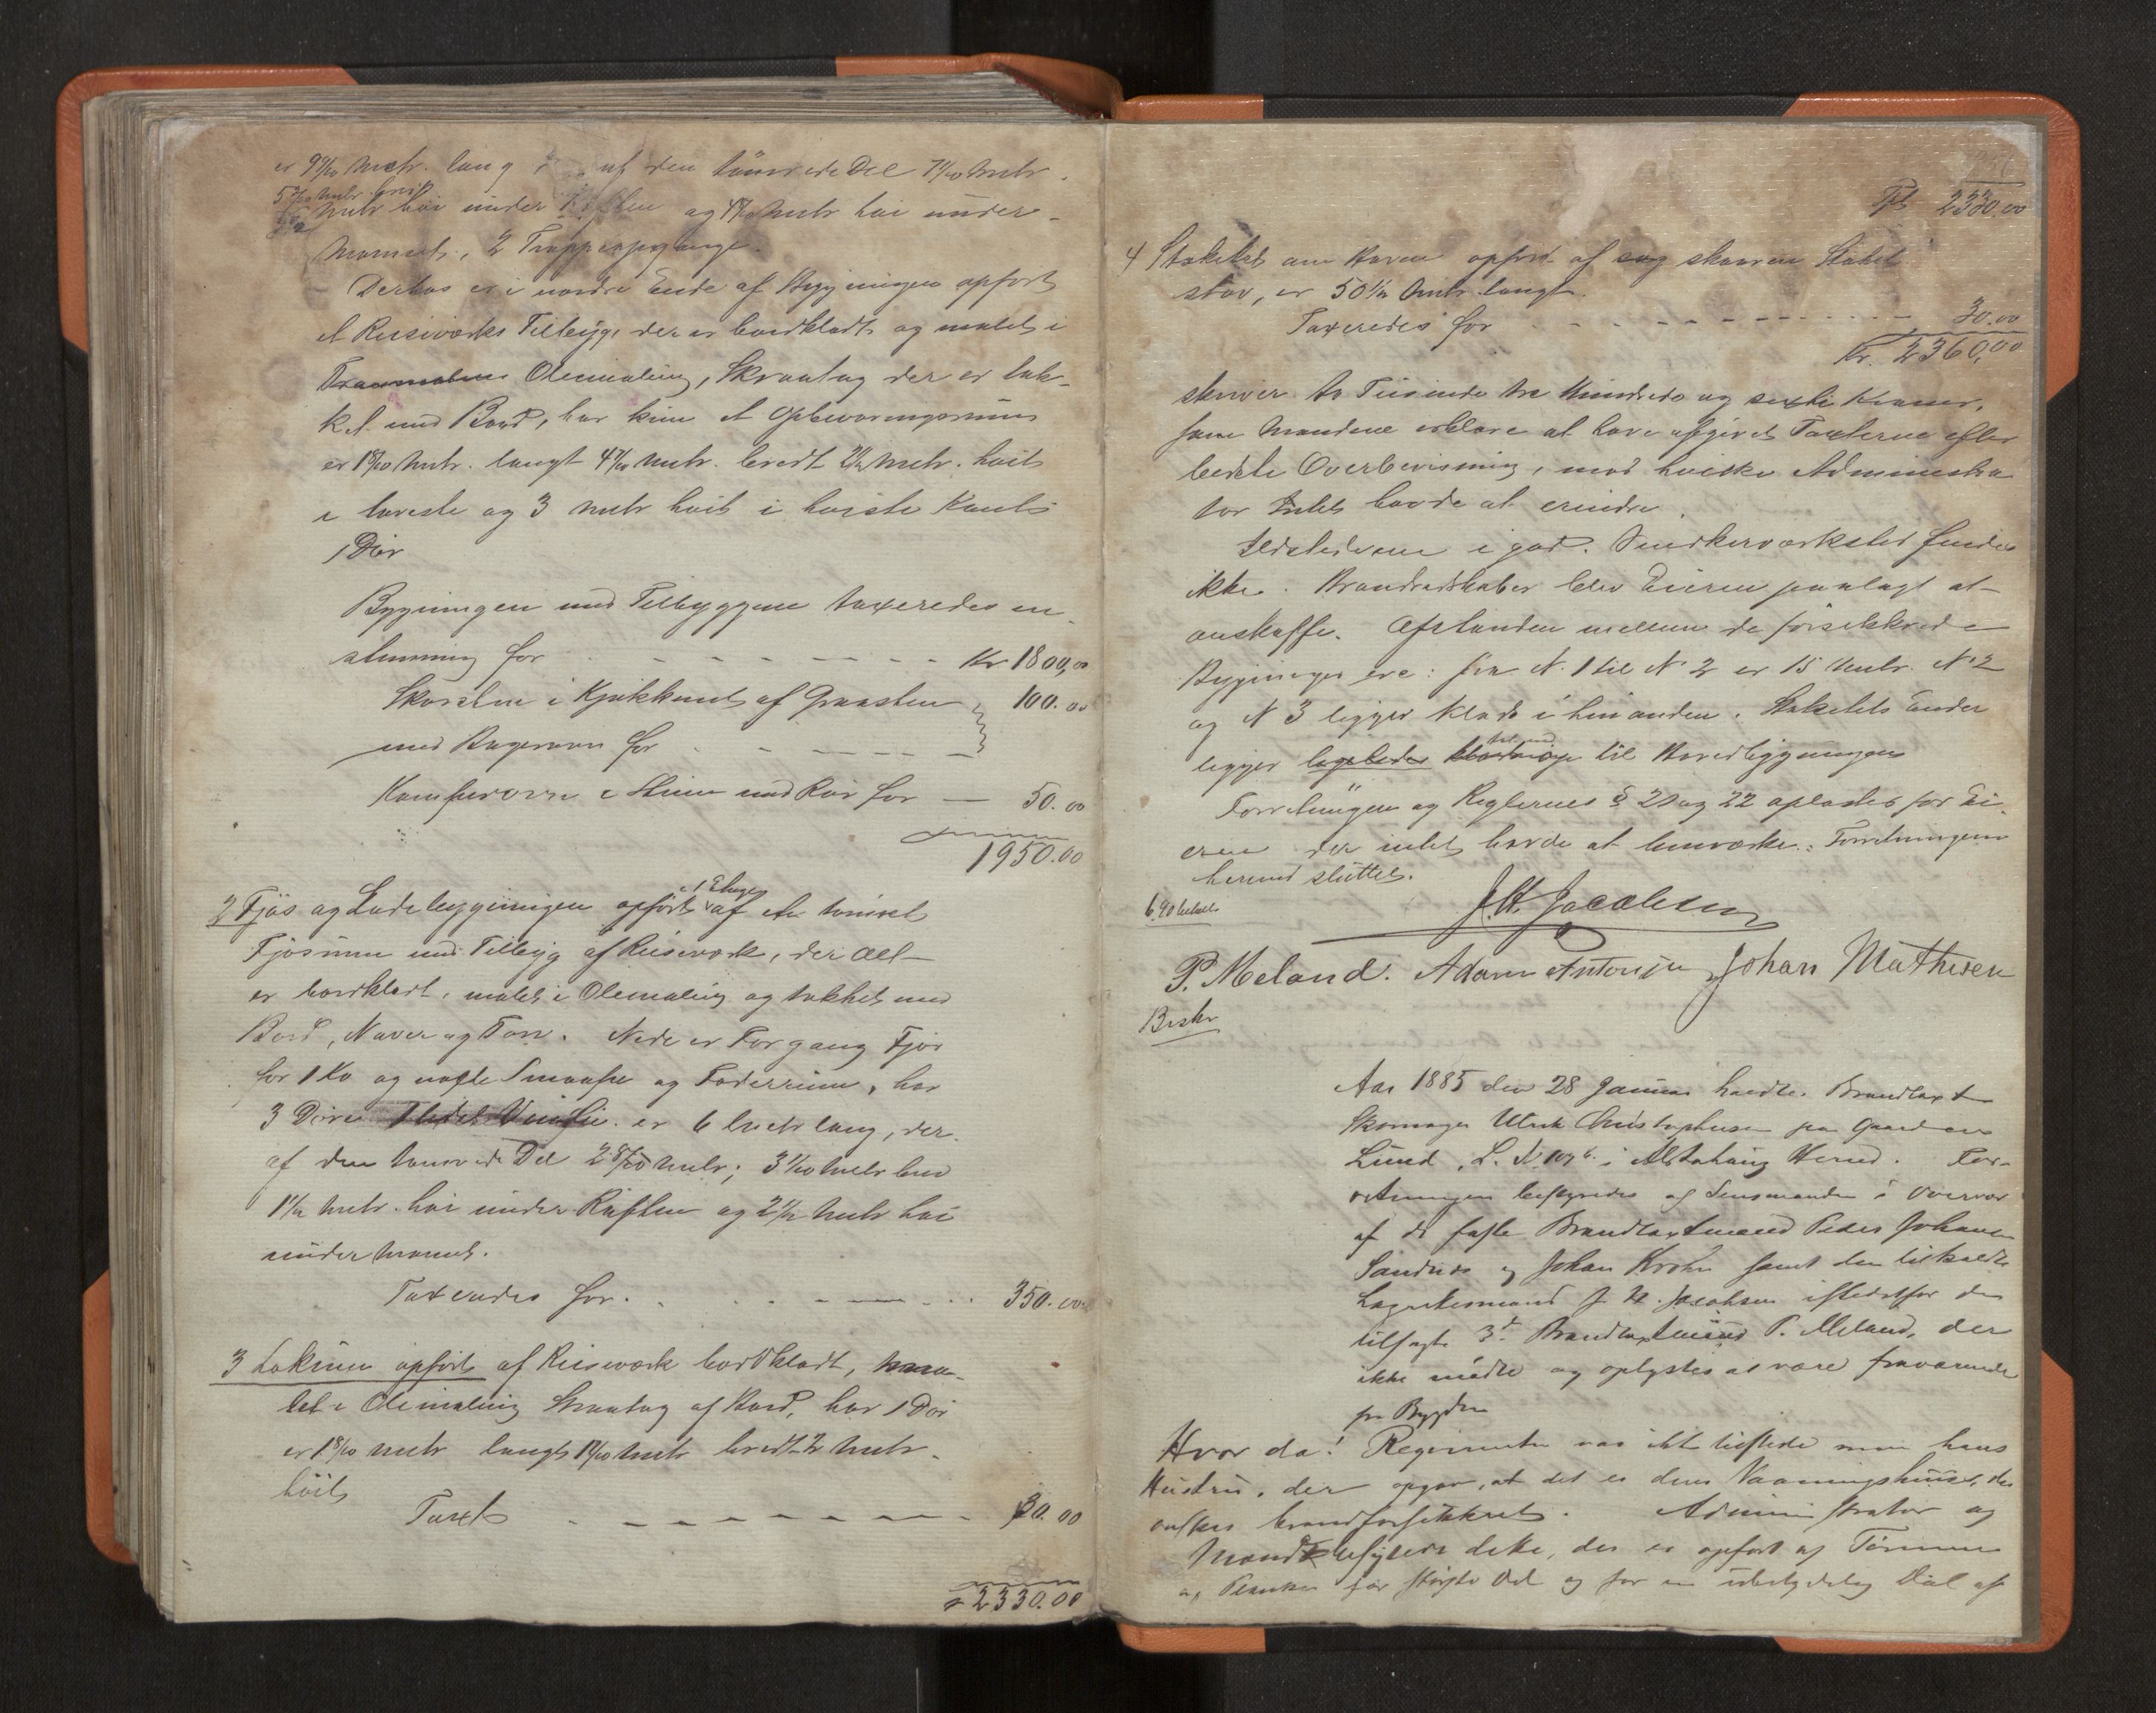 er 9 7/10 Metr. lang af den tömrede Del 7 1/10 Metr.
5 7/10 Metr. breid
Metr høi under Raften og Metr høi under
Mønnet, 2 Trappeopgange.
Derhos er i nordre Ende af Bygningen opført
et Reisværks Tilbyg, der er bordklædt og malet i
Oliemaling, Skraatag der er tæk-
ket med Bord, har kun et Opbevaringsrum
er 1 8/10 Metr. langt 4 7/10 Metr. bredt 2 1/2 Metr. høit
i laveste og 3 Metr høit i høiste Kant
1 Dør
Bygningen med Tilbyggene taxeredes en-
stemmig for - - - - - - - Kr 1800,00
Skorsten i Kjøkkenet af Graasten 100.00
med Bagerovn for - - - - -
Kamfurovn i Stuen med Rør for — 50.00
1950.00
2 Fjøs og Ladebygningen opført i 1 Etage af et tømret
Fjøsrum med Tilbyg af Reisværk, der Alt
er bordklædt, malet i Oliemaling og tækket med
Bord, Næver og Torv. Nede er Forgang Fjøs
for 1 Ko og nogle Smaafæ og Foderrum, har
3 Døre er 6 Metr lang, der-
af den tømrede Del 2 8/10 Metr; 3 1/10 Metr bred
1 1/2 Metr. høi under Raften og 2 1/2 Metr høi
under Mønnet.
Taxeredes for. - - - - 350.00
3 Lokum opført af Reisværk bordklædt, ma-
let i Oliemaling Skraatag af Bord, har 1 Dør
er 1 8/10 Metr langt Metr bredt 2 Metr.
høit
Taxt - - - - - - - 30.00
2330.00
Tpt 2330.00
4 Stakitet om Haven opført af skaaren Stakit
stav, er 50 1/2 Metr langt.
Taxeredes for - - - - - - - 30.00
Kr. 2360,00
skriver to Tusinde tre Hundrede og sexti Kroner,
som Mændene erklære at have afgivet Taxterne efter
bedste Overbevisning, mod hvilke Administra
tor Intet havde at erindre.
Ildstederne i god. Snedkerværksted findes
ikke. Brandredskaber blev Eieren paalagt at
anskaffe. Afstanden mellem de forsikkrede
Bygninger ere: fra N. 1 til N 2 er 15 Metr. N 2
og N 3 ligger klods i hinanden. Stakitets Ender
ligger til Hovedbygningen
Forretningen og Reglernes § 21 og 22 oplæstes for Ei-
eren der intet havde at bemærke. Forretningen
hermed sluttet.
6,90 betalt
J. H. Jacobsen
P. Meland. Adam Antonsen Johan Mathisen
Beskr
Aar 1885 den 28 Januar holdtes Brandtaxt
Skomager Ulrik Christophersen paa Gaarden
Lund, L. N 107 b. i Alstahaug Herred. For-
retningen bestyredes af Lensmanden i Overvær
af de faste Brandtaxtmænd Peder Johan
Sandnes og Johan Krohn samt den tilkaldte
Lagrettesmand J. H. Jacobsen istedetfor den
tilsagte 3d. Brandtaxtmand P. Meland, der
ikke mødte og oplystes at være fraværende
fra Bygden
Hvor da! Rekvirenten var ikke tilstede men hans
Hustru, der opgav, at det er deres Vaaningshuus, der
ønskes brandforsikkret. Administrator og
Mænd besigtede dette, der er opført af Tømmer
og Planker for største Del og for en ubetydelig Del af